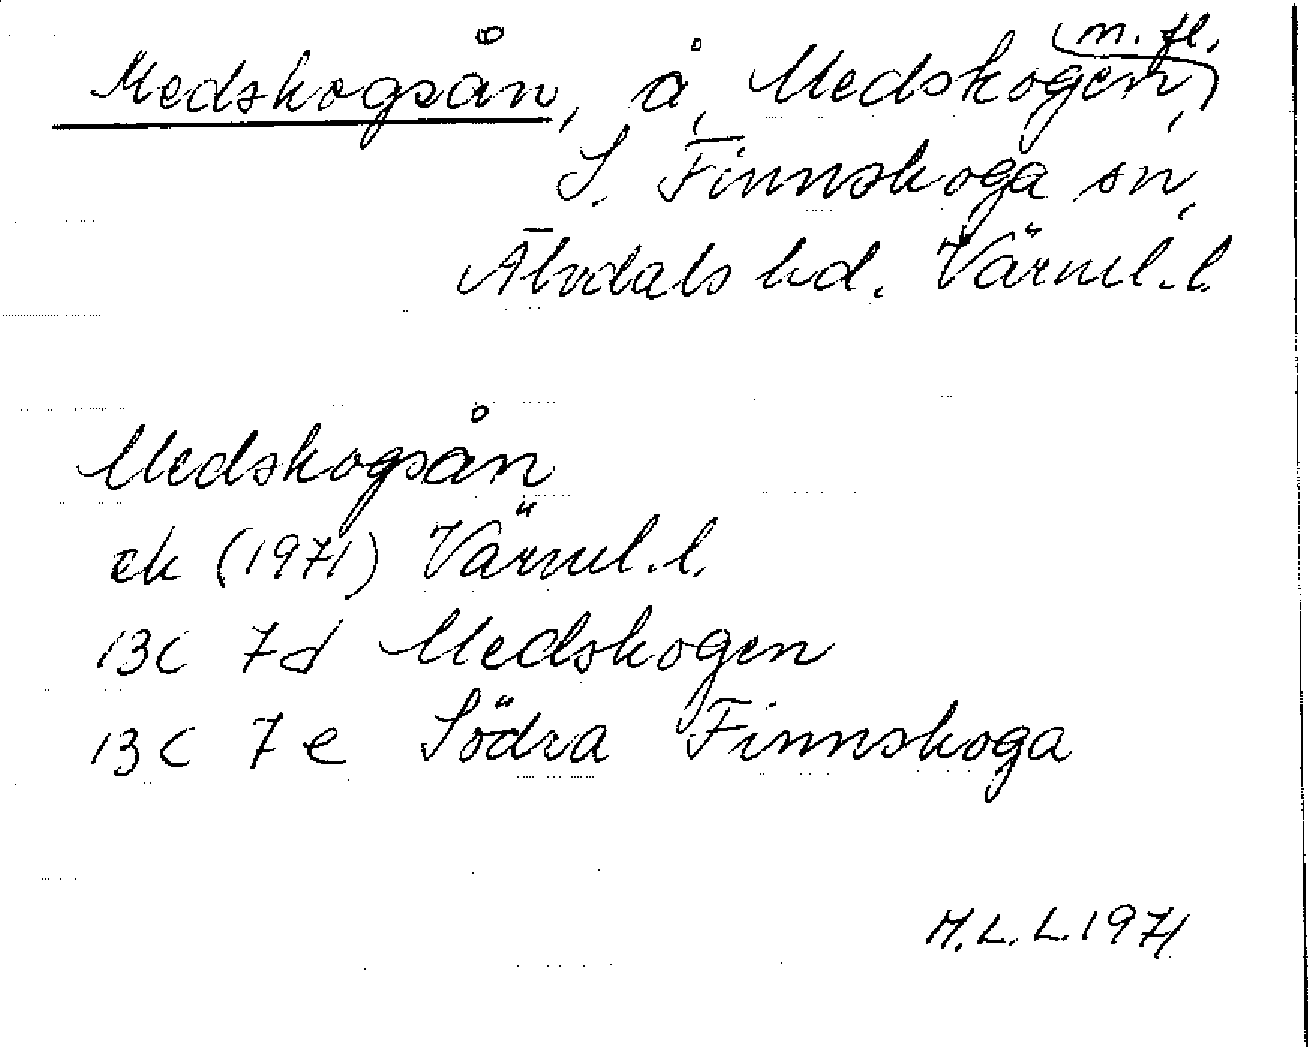 Medskogsån, å, Medskogen, m. fl.
S. Finnskoga sn,
Älvdals hd. Värml. l.
Medskogsån
ek (1971) Värml. l.
13C 7d Medskogen
13C 7e Södra Finnskoga
M.L.L. 1971